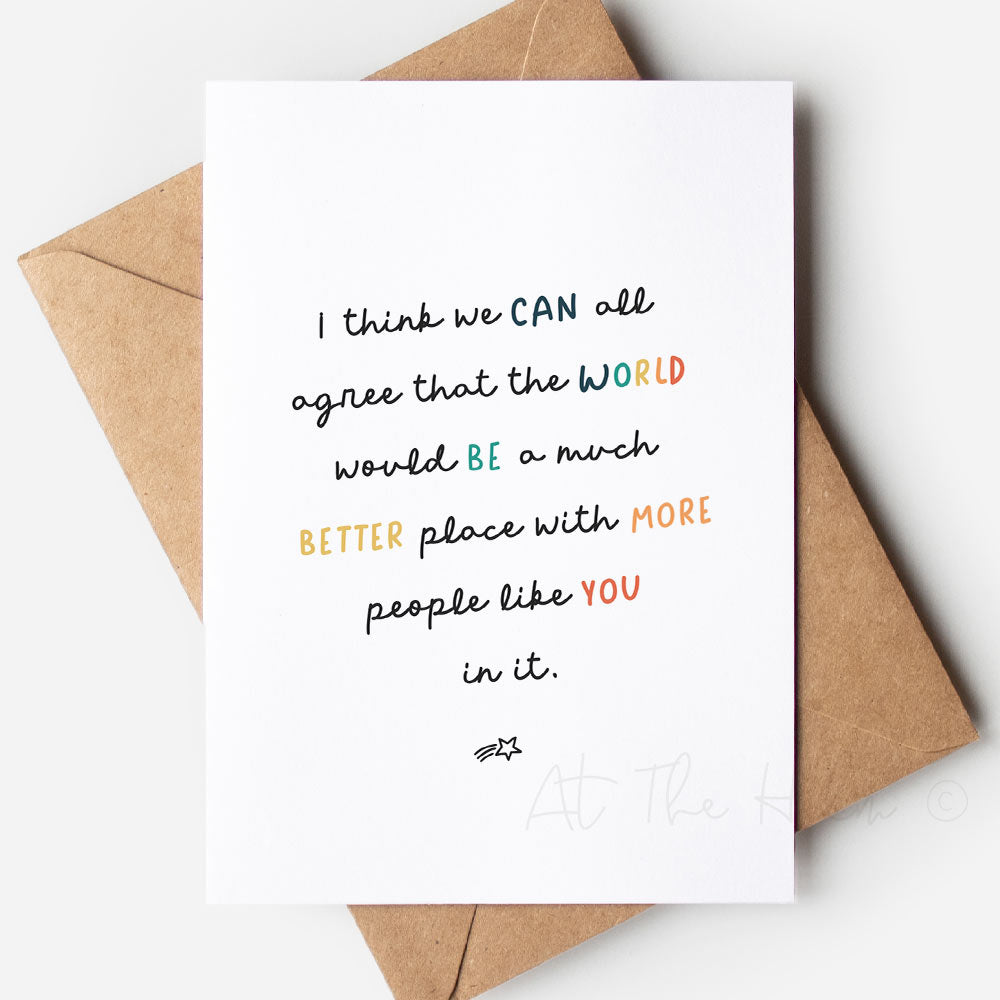 I think we CAN all
agree that the WORLD
would BE a much
BETTER place with MORE
people like YOU
in it.
At The Helm ©